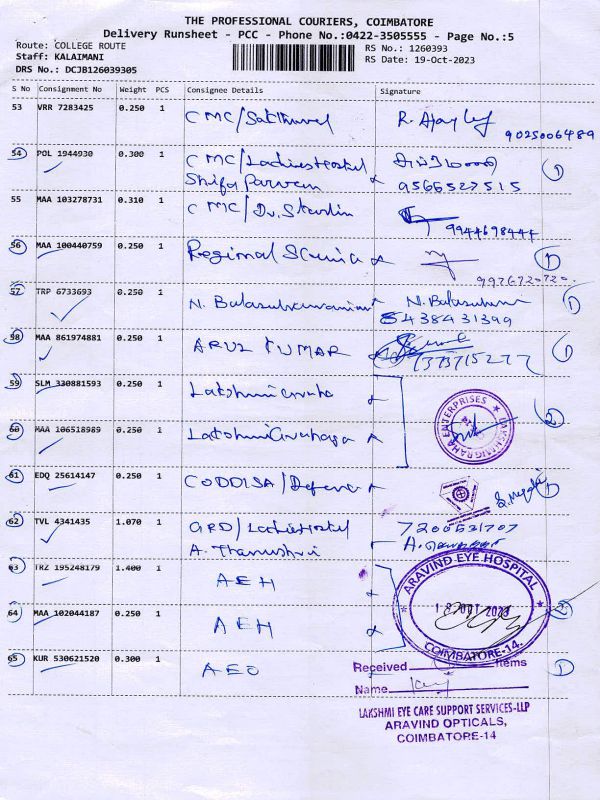 THE PROFESSIONAL COURIERS, COIMBATORE
Delivery Runsheet - PCC - Phone No.:0422-3505555 - Page No.:5
Route: COLLEGE ROUTE
Staff: KALAIMANI
DRS No.: DCJB126039305
RS No.: 1260393
RS Date: 19-Oct-2023
S No Consignment No Weight PCS Consignee Details Signature
53 VRR 7283425 0.250 1 CMC/Sakthivel R. Ajay
9025006489
54 POL 1944930 0.300 1 CMC/Ladies Hostel
Shifa Parveen 9566527515 1
55 MAA 103278731 0.310 1 CMC/Dr. Starlin
9944698444
56 MAA 100440759 0.250 1 Regional Science 1
57 TRP 6733693 0.250 1 N. Balasubramaniam N. Balasubram 1
8438431399
58 MAA 861974881 0.250 1 ARUL KUMAR 1
59 SLM 330881593 0.250 1 Lakshmi
LAKSHMIGRAHA ENTERPRISES 2
60 MAA 106518989 0.250 1 Lakshmi
61 EDQ 25614147 0.250 1 CODDISA/Defence 1
62 TVL 4341435 1.070 1 GRD/Ladies Hostel 7200521707
A. Thanushri
63 TRZ 195248179 1.400 1 AEH
ARAVIND EYE HOSPITAL
18 OCT 2023
COIMBATORE-14.
64 MAA 102044187 0.250 1 AEH 2
65 KUR 530621520 0.300 1 AEO 1
Received Items
Name
LAKSHMI EYE CARE SUPPORT SERVICES-LLP
ARAVIND OPTICALS,
COIMBATORE-14